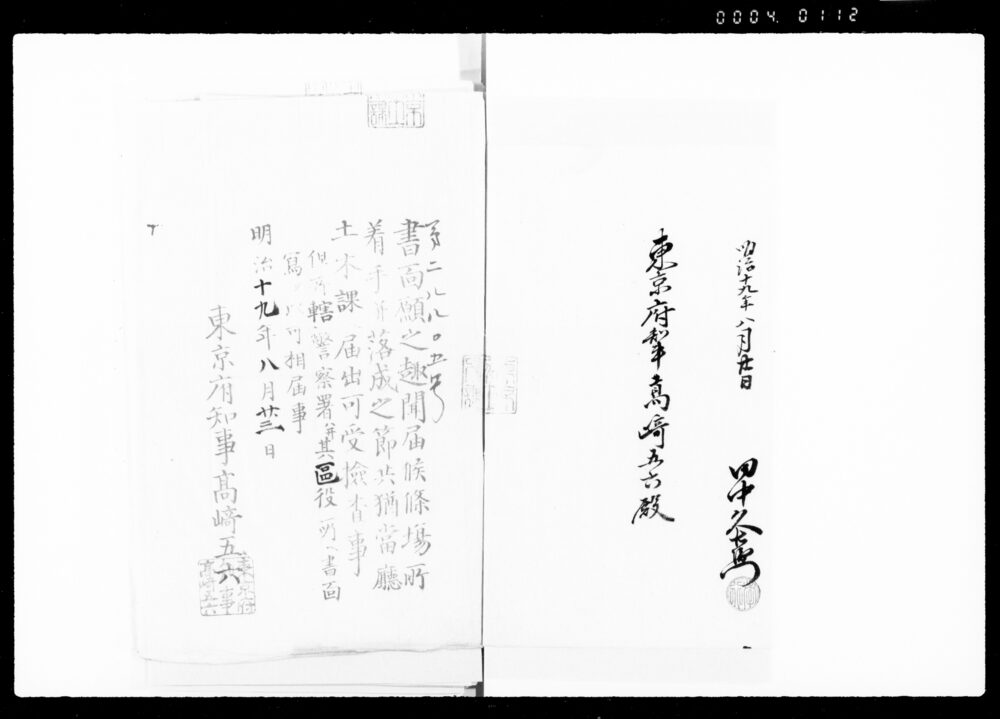 0004 0112
明治十九年八月廿日
田中久重
東京府知事高崎五六殿
第二八八〇五号
書面願之趣聞届候條場所
着手并落成之節共猶當廳
土木課届出可受撿査事
但所轄警察署并其區役所ヘ書面
寫ヲ以可相届事
明治十九年八月廿三日
東京府知事髙﨑五六